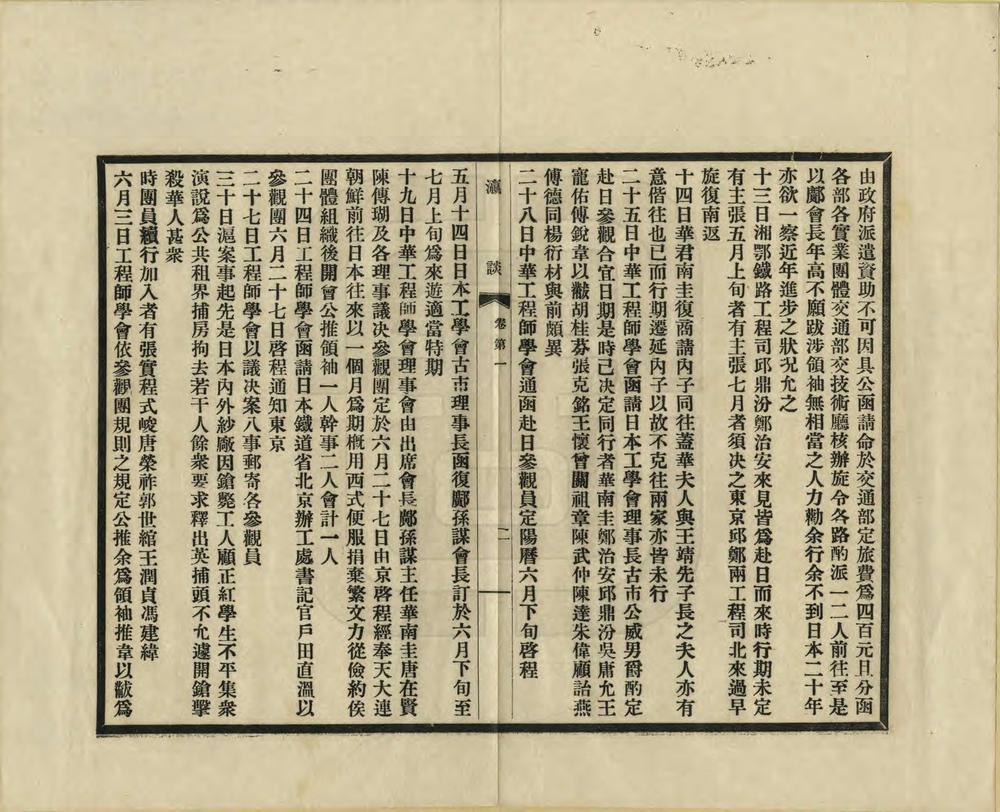 由政府派遣資助不可因具公函請命於交通部定旅費爲四百元且分函
各部各實業團體交通部交技術廳核辦旋令各路酌派一二人前往至是
以鄺會長年高不願跋涉領袖無相當之人力勸余行余不到日本二十年
亦欲一察近年進步之狀況允之
十三日湘鄂鐵路工程司邱鼎汾鄭治安來見皆爲赴日而來時行期未定
有主張五月上旬者有主張七月者須決之東京邱鄭兩工程司北來過早
旋復南返
十四日華君南圭復商請內子同往蓋華夫人與王靖先子長之夫人亦有
意偕往也已而行期遷延內子以故不克往兩家亦皆未行
二十五日中華工程師學會函請日本工學會理事長古市公威男爵酌定
赴日參觀合宜日期是時已決定同行者華南圭鄭治安邱鼎汾吳庸允王
寵佑傅銳韋以黻胡桂芬張克銘王懷曾關祖章陳武仲陳達朱偉顧詒燕
傅德同楊衍材與前頗異
二十八日中華工程師學會通函赴日參觀員定陽曆六月下旬啓程
瀛談
卷第一
二
五月十四日日本工學會古市理事長函復鄺孫謀會長訂於六月下旬至
七月上旬爲來遊適當特期
十九日中華工程師學會理事會由出席會長鄺孫謀主任華南圭唐在賢
陳傳瑚及各理事議決參觀團定於六月二十七日由京啓程經奉天大連
朝鮮前往日本往來以一個月爲期槪用西式便服捐棄繁文力從儉約俟
團體組織後開會公推領袖一人幹事二人會計一人
二十四日工程師學會函請日本鐵道省北京辦工處書記官戶田直溫以
參觀團六月二十七日啓程通知東京
二十七日工程師學會以議決案八事郵寄各參觀員
三十日滬案事起先是日本內外紗廠因鎗斃工人顧正紅學生不平集衆
演說爲公共租界捕房拘去若干人餘衆要求釋出英捕頭不允遽開鎗擊
殺華人甚衆
時團員續行加入者有張實程式峻唐榮祚郭世綰王潤貞馮建緯
六月三日工程師學會依參觀團規則之規定公推余爲領袖推韋以黻爲